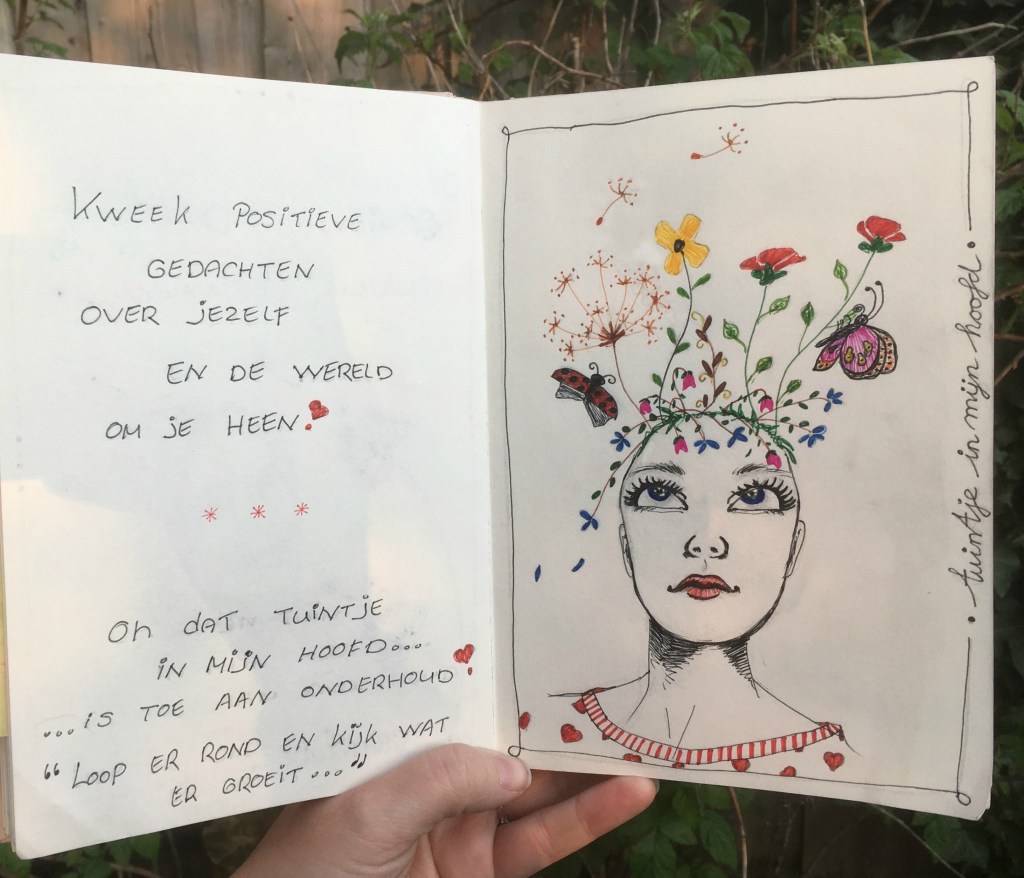 KWEEK POSITIEVE
GEDACHTEN
OVER JEZELF
EN DE WERELD
OM JE HEEN!
* * *
OH DAT TUINTJE
IN MIJN HOOFD...
...IS TOE AAN ONDERHOUD!
“LOOP ER ROND EN KIJK WAT
ER GROEIT...”
• tuintje in mijn hoofd •